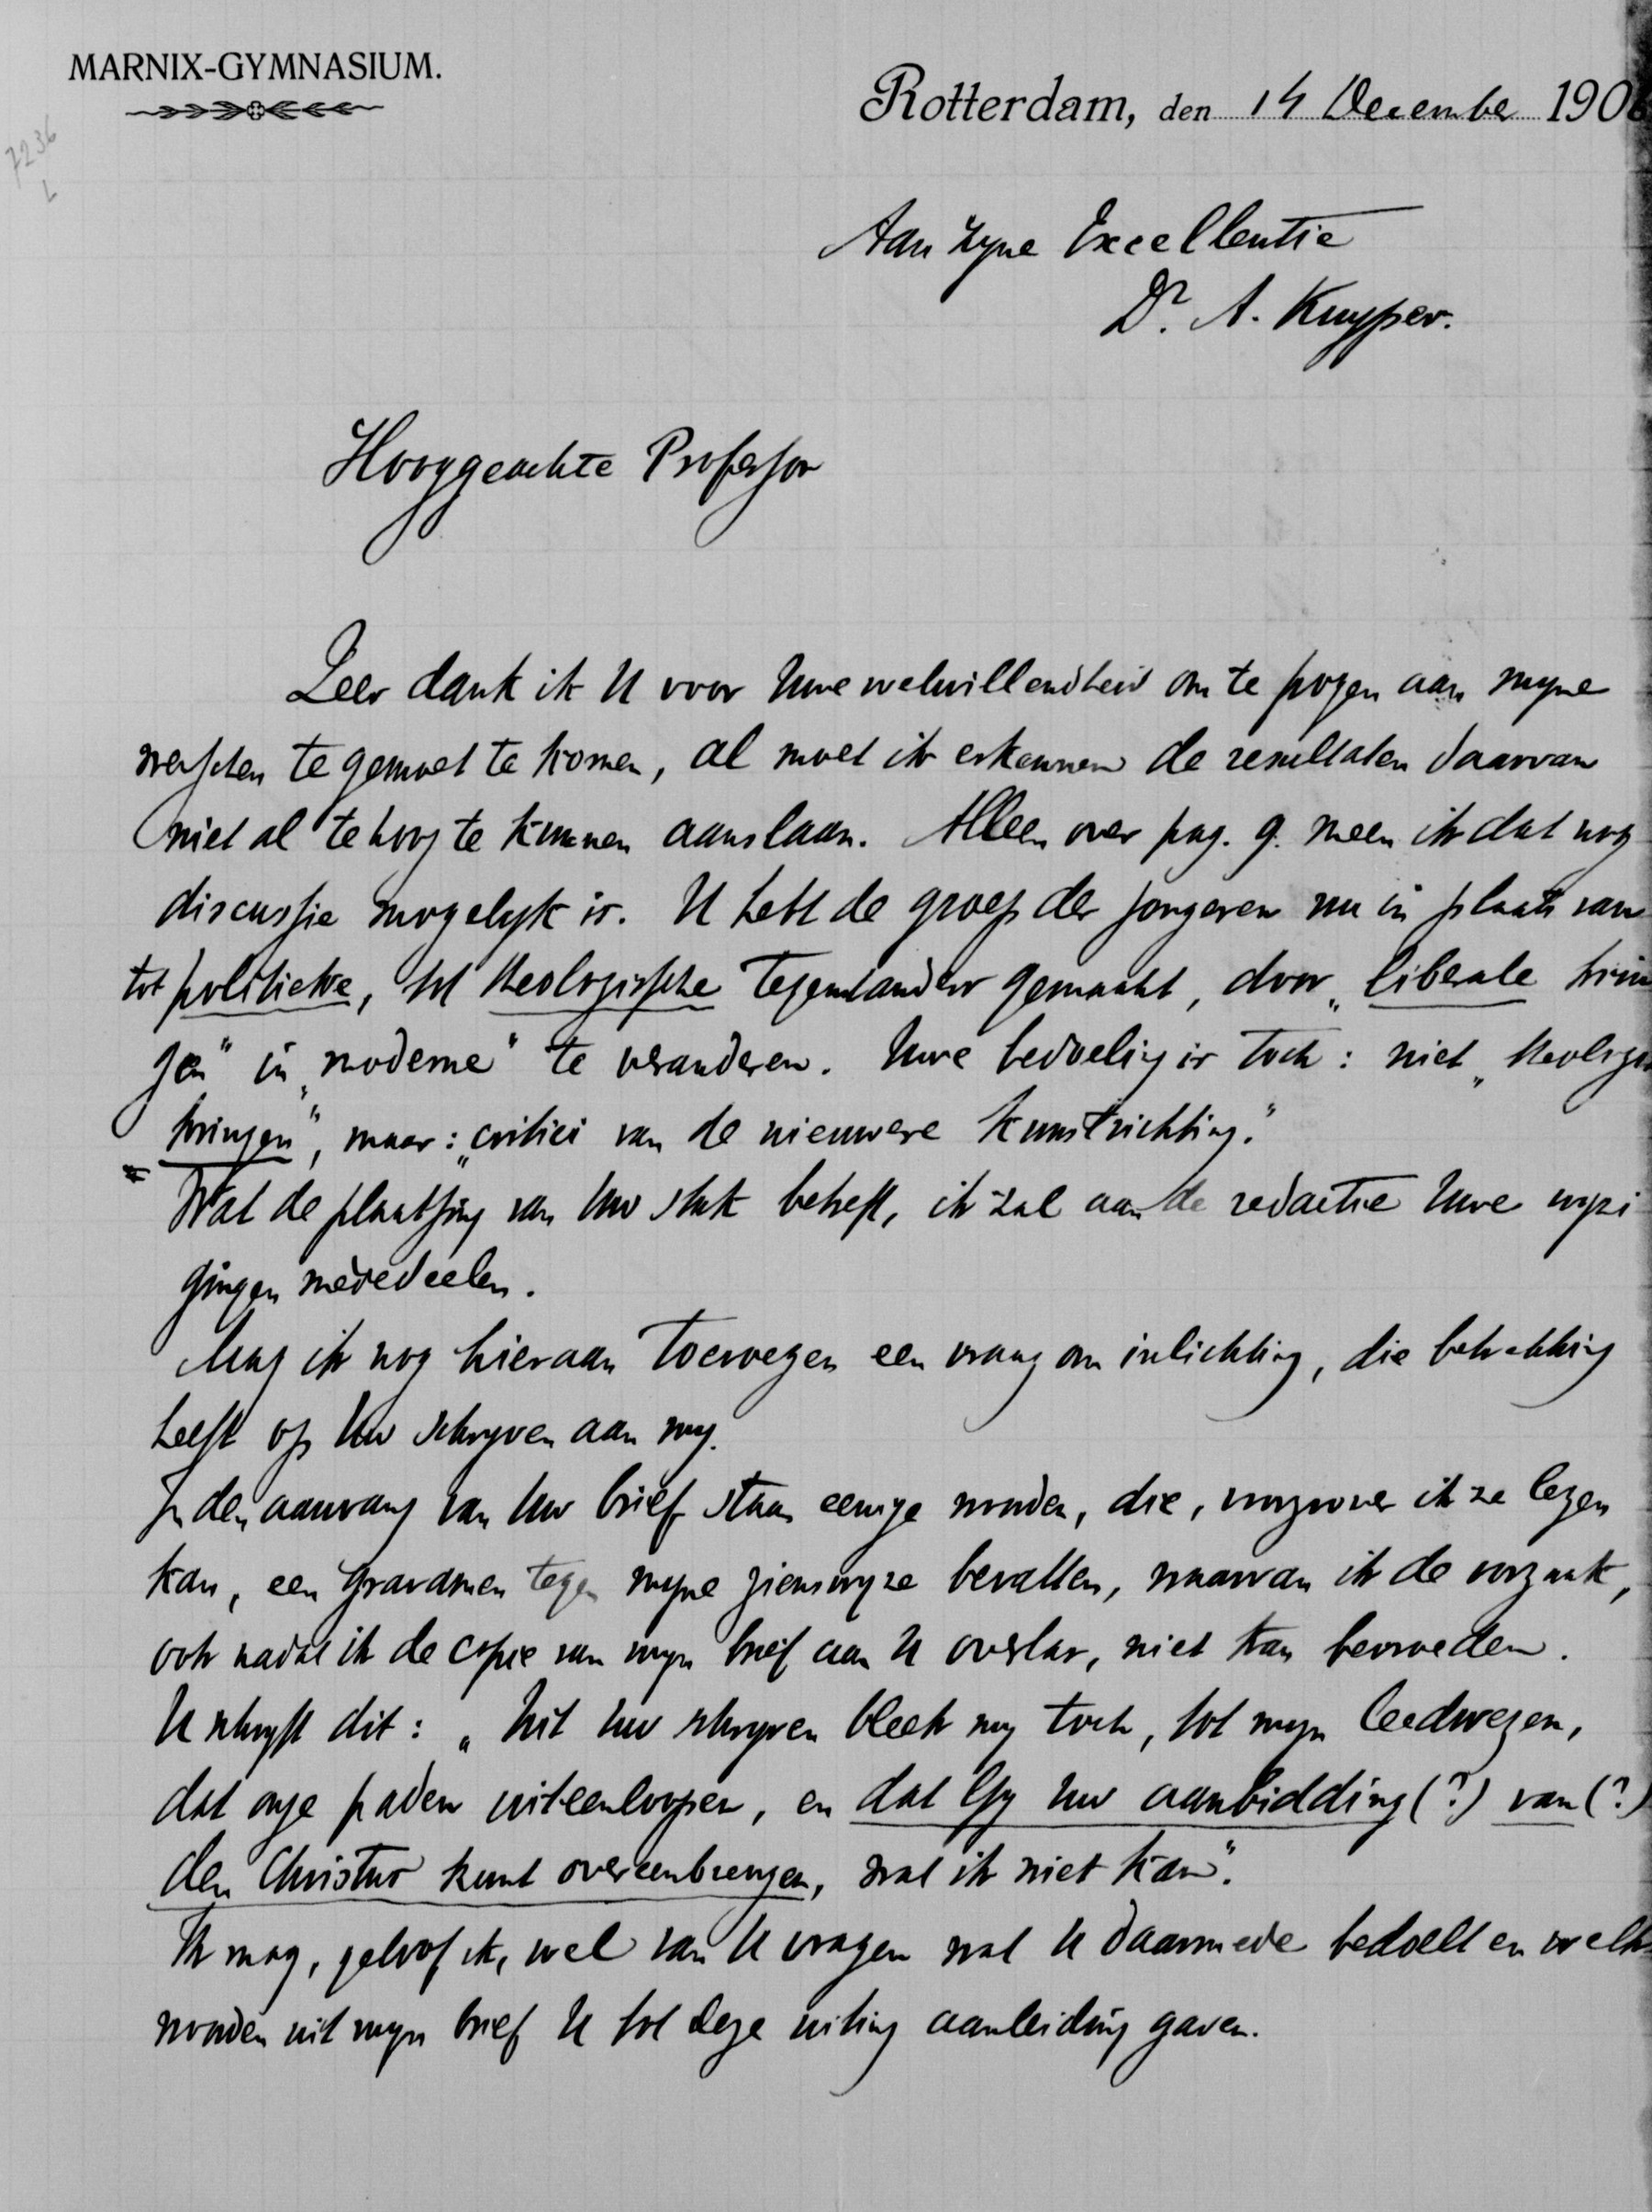 MARNIX-GYMNASIUM.
Rotterdam, den 14 December 190
7236
L
Aan Zyne Excellentie
Dr. A. Kuyper.
Hooggeachte Professor
Zeer dank ik U voor Uwe welwillendheid om te pogen aan myne
wenschen te gemoet te komen, al moet ik erkennen de resultaten daarvan
niet al te hoog te kunnen aanslaan. Alleen over pag. 9. meen ik dat nog
discussie mogelyk is. U hebt de groep der jongeren nu in plaats van
tot politieke, tot theologische tegenstanders gemaakt, door „liberale krin
gen" in „moderne" te veranderen. Uwe bedoeling is toch: niet „theologi
kringen", maar: „critici van de nieuwere kunstrichting."
Wat de plaatsing van Uw stuk betreft, ik zal aan de redactie Uwe wyzi
gingen mededeelen.
Mag ik nog hieraan toevoegen een vraag om inlichting, die betrekking
heeft op Uw schryven aan my.
In den aanvang van Uw brief staan eenige woorden, die, voorzoover ik ze lezen
kan, een gravamen tegen myne zienswyze bevatten, waarvan ik de oorzaak,
ook nadat ik de copie van myn brief aan U overlas, niet kan bevroeden.
U schryft dit: „Uit Uw schryven bleek my toch, tot myn leedwezen,
dat onze paden uiteenloopen, en dat Gy Uw aanbidding (?) van (?)
den Christus kunt overeenbrengen, wat ik niet kan".
Ik mag, geloof ik, wel van U vragen wat U daarmede bedoelt en welk
woorden uit myn brief U tot deze uiting aanleiding gaven.